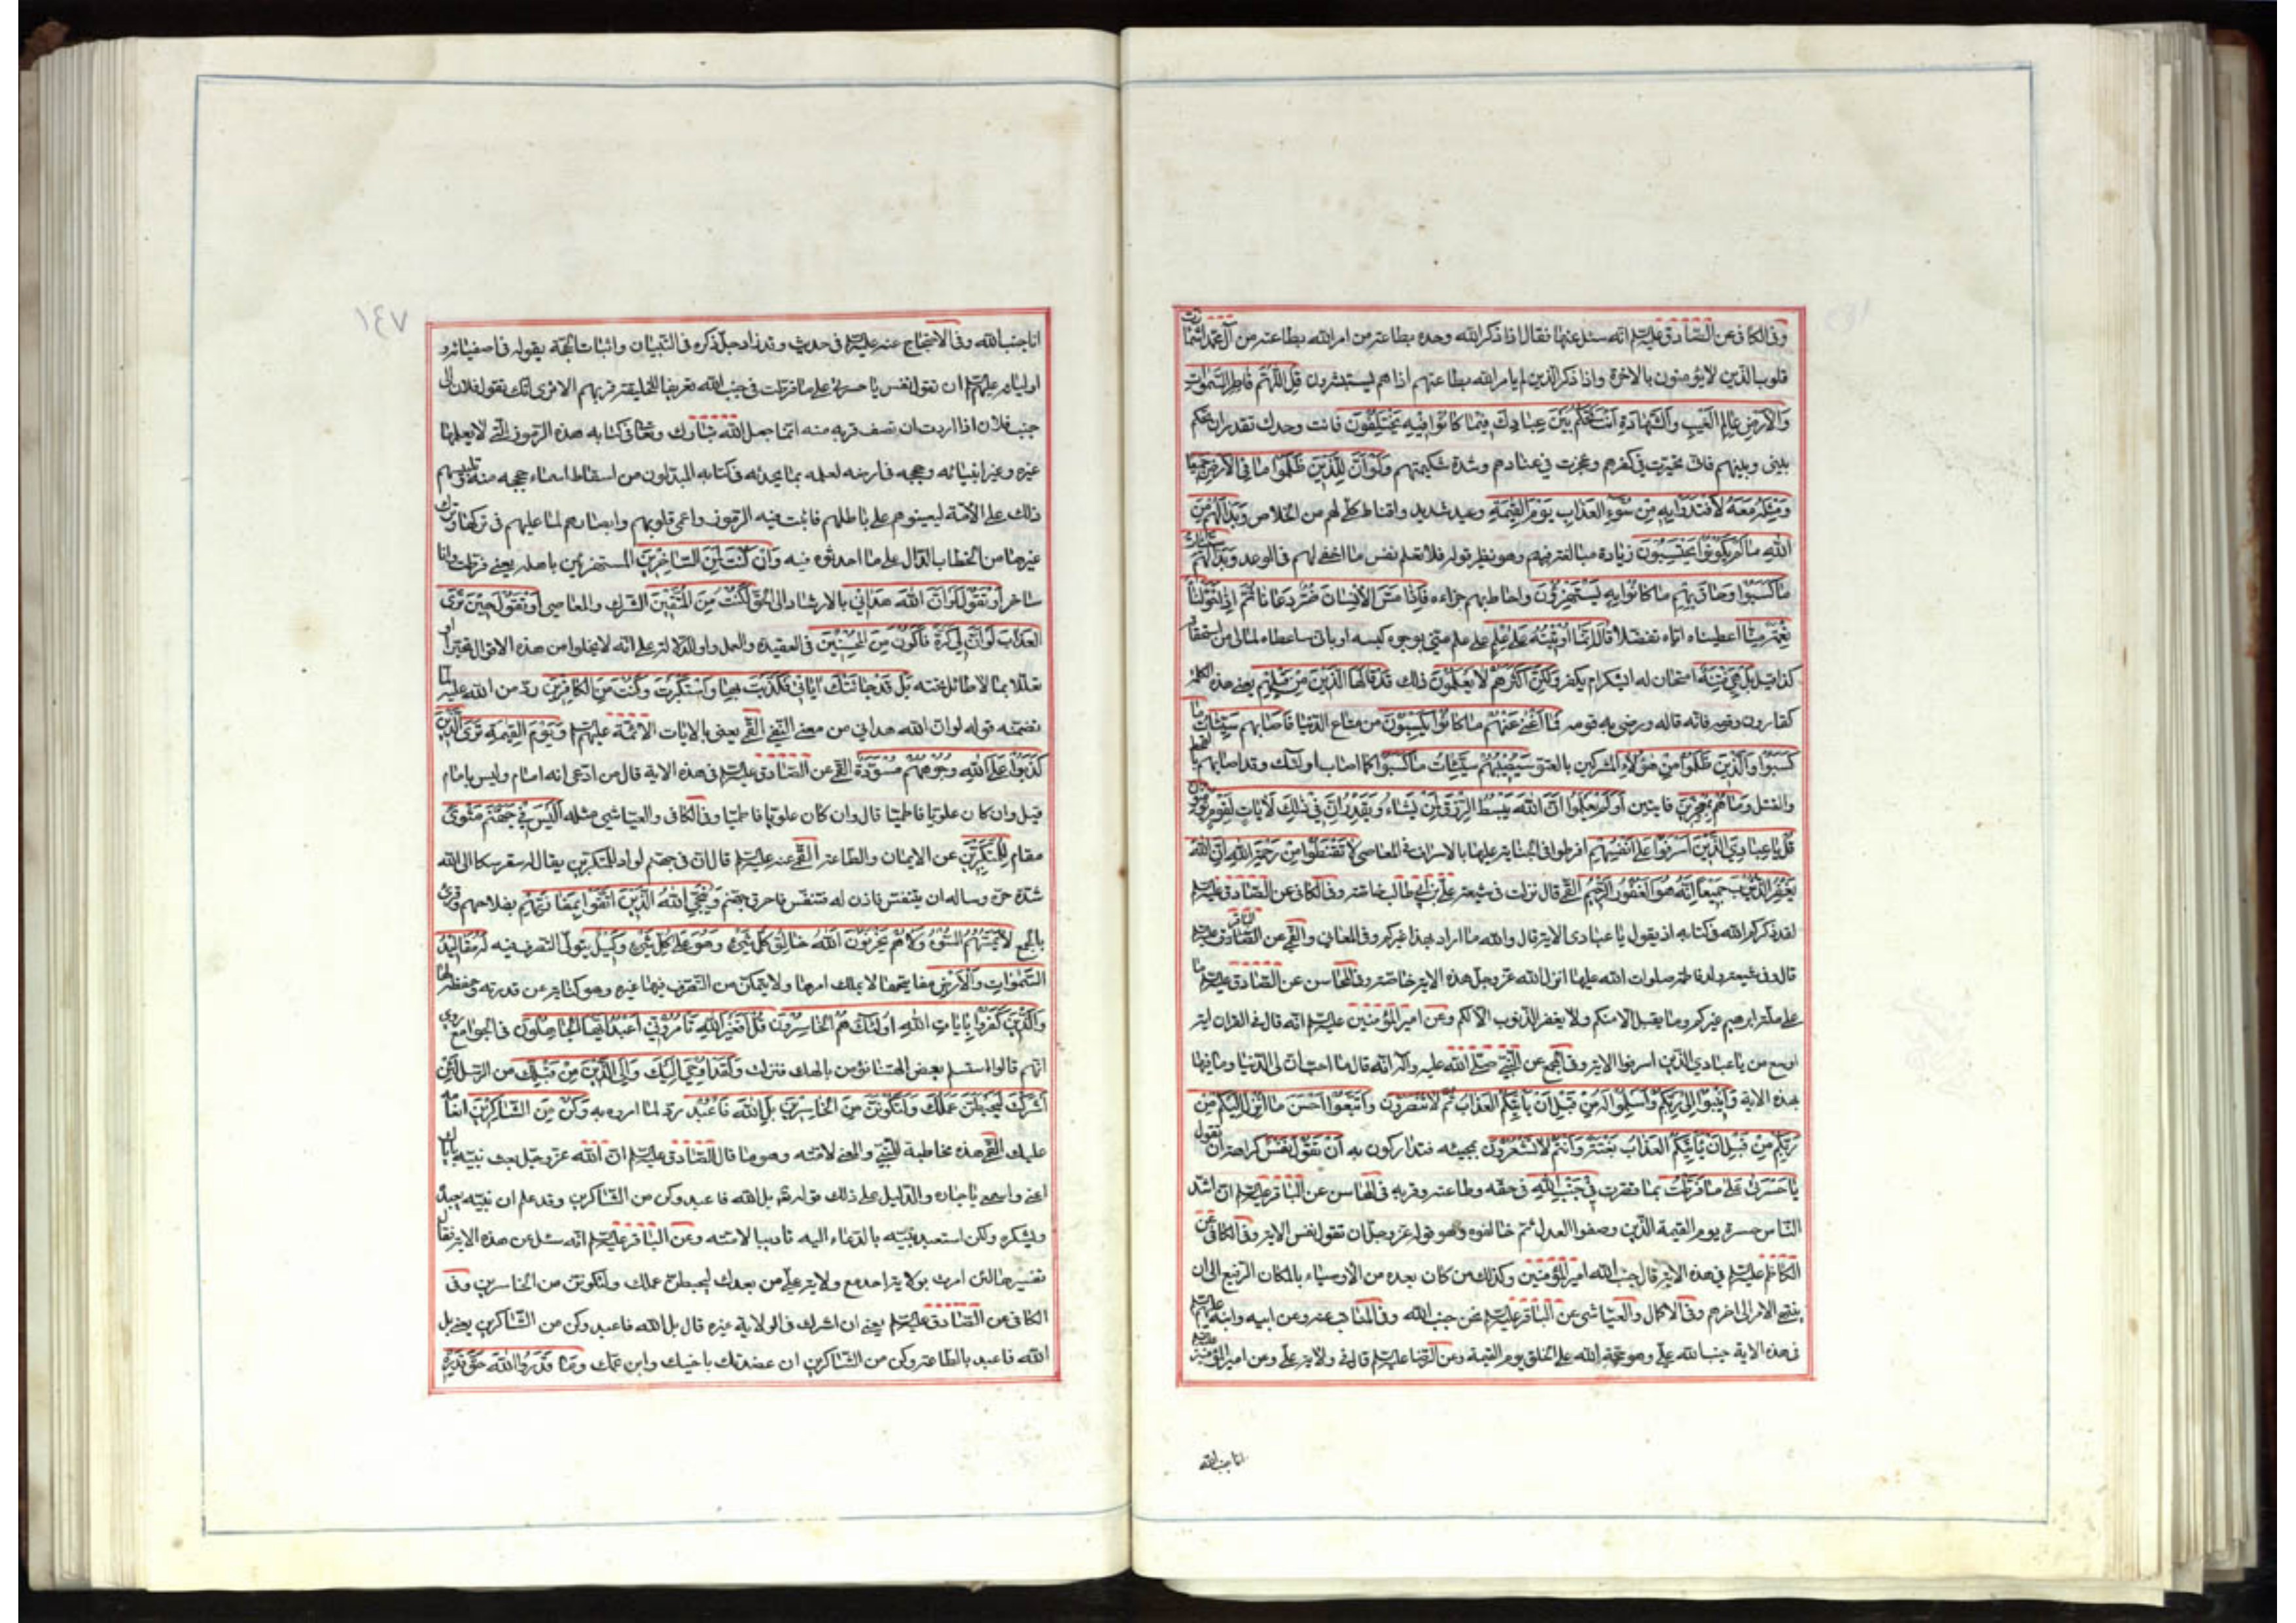 وفي الكافي عن الصادق عليه السلم انه سئل عنها فقال اذا ذكر الله وحده بطاعة من امر الله بطاعته من آل محمد اشمأزت
قلوب الذين لا يؤمنون بالاخرة واذا ذكر الذين لم يامر الله بطاعتهم اذا هم يستبشرون قُلِ اللّٰهُمَّ فَاطِرَ السَّمٰوَاتِ
وَالْاَرْضِ عَالِمَ الْغَيْبِ وَالشَّهَادَةِ اَنْتَ تَحْكُمُ بَيْنَ عِبَادِكَ فِيمَا كَانُوا فِيهِ يَخْتَلِفُونَ فانت وحدك تقدر ان تحكم
بيني وبينهم فاني تحيرت في كفرهم وعجزت في عنادهم وشدة شكيمتهم وَلَوْ اَنَّ لِلَّذِينَ ظَلَمُوا مَا فِي الْاَرْضِ جَمِيعًا
وَمِثْلَهُ مَعَهُ لَافْتَدَوْا بِهِ مِنْ سُوءِ الْعَذَابِ يَوْمَ الْقِيٰمَةِ وعيد شديد واقناط كلي لهم من الخلاص وَبَدَا لَهُمْ مِنَ
اللّٰهِ مَا لَمْ يَكُونُوا يَحْتَسِبُونَ زيادة مبالغة فيهم وهو نظير قوله فلا تعلم نفس ما اخفي لهم في الوعد وَبَدَا لَهُمْ سَيِّئَاتُ
مَا كَسَبُوا وَحَاقَ بِهِمْ مَا كَانُوا بِهِ يَسْتَهْزِؤُنَ واحاط بهم جزاءه فَاِذَا مَسَّ الْاِنْسَانَ ضُرٌّ دَعَانَا ثُمَّ اِذَا خَوَّلْنَاهُ
نِعْمَةً مِنَّا اعطيناه اياه تفضلا قَالَ اِنَّمَا اُوتِيتُهُ عَلَى عِلْمٍ على علم مني بوجوه كسبه او باني ساعطاه لما لي من استحقاقه
كذا قيل بَلْ هِيَ فِتْنَةٌ امتحان له ايشكر ام يكفر وَلَكِنَّ اَكْثَرَهُمْ لَا يَعْلَمُونَ ذلك قَدْ قَالَهَا الَّذِينَ مِنْ قَبْلِهِمْ يعني هذه الكلمة
كقارون وقومه فانه قاله ورضي به قومه فَمَا اَغْنَى عَنْهُمْ مَا كَانُوا يَكْسِبُونَ من متاع الدنيا فَاَصَابَهُمْ سَيِّئَاتُ مَا
كَسَبُوا وَالَّذِينَ ظَلَمُوا مِنْ هَؤُلَاءِ المشركين بالعتو سَيُصِيبُهُمْ سَيِّئَاتُ مَا كَسَبُوا كما اصاب اولئك وقد اصابهم بالقحط
والقتل وَمَا هُمْ بِمُعْجِزِينَ فايتين اَوَلَمْ يَعْلَمُوا اَنَّ اللّٰهَ يَبْسُطُ الرِّزْقَ لِمَنْ يَشَاءُ وَيَقْدِرُ اِنَّ فِي ذَلِكَ لَآيَاتٍ لِقَوْمٍ يُؤْمِنُونَ
قُلْ يَا عِبَادِيَ الَّذِينَ اَسْرَفُوا عَلَى اَنْفُسِهِمْ افرطوا في الجناية عليها بالاسراف في المعاصي لَا تَقْنَطُوا مِنْ رَحْمَةِ اللّٰهِ اِنَّ اللّٰهَ
يَغْفِرُ الذُّنُوبَ جَمِيعًا اِنَّهُ هُوَ الْغَفُورُ الرَّحِيمُ القمي قال نزلت في شيعة علي بن ابي طالب خاصة وفي الكافي عن الصادق عليه السلم
لقد ذكركم الله في كتابه اذ يقول يا عبادى الاية قال والله ما اراد بهذا غيركم وفي المعاني والقمي عن الباقر
قال وفي شيعة ولد فاطمة صلوات الله عليها انزل الله عز وجل هذه الاية خاصة وفي المحاسن عن الصادق عليه السلم ما
على ملة ابرهيم غيركم وما يقبل الا منكم ولا يغفر الذنوب الا لكم وعن امير المؤمنين عليه السلم انه قال في القران اية
اوسع من يا عبادي الذين اسرفوا الاية وفي المجمع عن النبي صلى الله عليه وآله انه قال ما احب ان لي الدنيا وما فيها
بهذه الاية وَاَنِيبُوا اِلَى رَبِّكُمْ وَاَسْلِمُوا لَهُ مِنْ قَبْلِ اَنْ يَأْتِيَكُمُ الْعَذَابُ ثُمَّ لَا تُنْصَرُونَ وَاتَّبِعُوا اَحْسَنَ مَا اُنْزِلَ اِلَيْكُمْ مِنْ
رَبِّكُمْ مِنْ قَبْلِ اَنْ يَأْتِيَكُمُ الْعَذَابُ بَغْتَةً وَاَنْتُمْ لَا تَشْعُرُونَ بمجيئه فتداركون به اَنْ تَقُولَ نَفْسٌ كراهة ان تقول
يَا حَسْرَتَى عَلَى مَا فَرَّطْتُ بما قصرت فِي جَنْبِ اللّٰهِ في حقه وطاعته وقربه في المحاسن عن الباقر عليه السلم ان اشد
الناس حسرة يوم القيمة الذين وصفوا العدل ثم خالفوه وهو قوله عز وجل ان تقول نفس الاية وفي الكافي عن
الكاظم عليه السلم في هذه الاية قال جنب الله امير المؤمنين وكذلك من كان بعده من الاوصياء بالمكان الرفيع الى ان
ينتهي الامر الى اخرهم وفي الاكمال والعياشي عن الباقر عليه السلم نحن جنب الله وفي المناقب عنه وعن ابيه وابنه عليهم السلم
في هذه الاية جنب الله علي وهو حجة الله على الخلق يوم القيمة وعن الرضا عليه السلم قال في ولاية علي وعن امير المؤمنين عليه السلم
انا جنب الله
١٤٧
انا جنب الله وفي الاحتجاج عنه عليه السلم في حديث وقد زاد جل ذكره في التبيان واثبات الحجة بقوله في اصفيائه و
اوليائه عليهم السلم ان تقول نفس يا حسرتى على ما فرطت في جنب الله تعريفا للخليقة قربهم الا ترى انك تقول فلان الى
جنب فلان اذا اردت ان تصف قربه منه انما جعل الله تبارك وتعالى في كتابه هذه الرموز التي لا يعلمها
غيره وغير انبيائه وحججه في ارضه لعلمه بما يحدثه في كتابه المبدلون من اسقاط اسماء حججه منه وتلبيسهم
ذلك على الامة ليعينوهم على باطلهم فاثبت فيه الرموز واعمى قلوبهم وابصارهم لما عليهم في تركها وترك
غيرها من الخطاب الدال على ما احدثوه فيه وَاِنْ كُنْتُ لَمِنَ السَّاخِرِينَ المستهزئين باهله يعني فرطت وانا
ساخر اَوْ تَقُولَ لَوْ اَنَّ اللّٰهَ هَدَانِي بالارشاد الى الحق لَكُنْتُ مِنَ الْمُتَّقِينَ الشرك والمعاصي اَوْ تَقُولَ حِينَ تَرَى
الْعَذَابَ لَوْ اَنَّ لِي كَرَّةً فَاَكُونَ مِنَ الْمُحْسِنِينَ في العقيدة والعمل واو للدلالة على انه لا يخلوا من هذه الاقوال تحيرا او
تعللا بما لا طائل تحته بَلَى قَدْ جَاءَتْكَ آيَاتِي فَكَذَّبْتَ بِهَا وَاسْتَكْبَرْتَ وَكُنْتَ مِنَ الْكَافِرِينَ رد من الله عليه لما
تضمنه قوله لو ان الله هداني من معنى النفي القمي يعني بالايات الائمة عليهم السلم وَيَوْمَ الْقِيٰمَةِ تَرَى الَّذِينَ
كَذَبُوا عَلَى اللّٰهِ وُجُوهُهُمْ مُسْوَدَّةٌ القمي عن الصادق عليه السلم في هذه الاية قال من ادعى انه امام وليس بامام
قيل وان كان علويا فاطميا قال وان كان علويا فاطميا وفي الكافي والعياشي مثله اَلَيْسَ فِي جَهَنَّمَ مَثْوًى
مقام لِلْمُتَكَبِّرِينَ عن الايمان والطاعة القمي عنه عليه السلم قال ان في جهنم لواد للمتكبرين يقال له سقر شكا الى الله
شدة حره وساله ان يتنفس فاذن له فتنفس فاحرق جهنم وَيُنَجِّي اللّٰهُ الَّذِينَ اتَّقَوْا بِمَفَازَتِهِمْ بفلاحهم وقرئ
بالجمع لَا يَمَسُّهُمُ السُّوءُ وَلَا هُمْ يَحْزَنُونَ اَللّٰهُ خَالِقُ كُلِّ شَيْءٍ وَهُوَ عَلَى كُلِّ شَيْءٍ وَكِيلٌ يتولى التصرف فيه لَهُ مَقَالِيدُ
السَّمٰوَاتِ وَالْاَرْضِ مفاتيحها لا يملك امرها ولا يتمكن من التصرف فيها غيره وهو كناية عن قدرته وحفظه لها
وَالَّذِينَ كَفَرُوا بِآيَاتِ اللّٰهِ اُولَئِكَ هُمُ الْخَاسِرُونَ قُلْ اَفَغَيْرَ اللّٰهِ تَأْمُرُونِّي اَعْبُدُ اَيُّهَا الْجَاهِلُونَ في الجوامع روي
انهم قالوا استسلم بعض الهتنا نؤمن بالهك فنزلت وَلَقَدْ اُوحِيَ اِلَيْكَ وَاِلَى الَّذِينَ مِنْ قَبْلِكَ من الرسل لَئِنْ
اَشْرَكْتَ لَيَحْبَطَنَّ عَمَلُكَ وَلَتَكُونَنَّ مِنَ الْخَاسِرِينَ بَلِ اللّٰهَ فَاعْبُدْ رد لما امروه به وَكُنْ مِنَ الشَّاكِرِينَ انعامه
عليك القمي هذه مخاطبة للنبي والمعنى لامته وهو ما قال الصادق عليه السلم ان الله عز وجل بعث نبيه باياك
اعني واسمعي يا جاره والدليل على ذلك قوله تعالى بل الله فاعبد وكن من الشاكرين وقد علم ان نبيه يعبده
ويشكره ولكن استعبد نبيه بالدعاء اليه تاديبا لامته وعن الباقر عليه السلم انه سئل عن هذه الاية فقال
تفسيرها لئن امرت بولاية احد مع ولاية علي من بعدك ليحبطن عملك ولتكونن من الخاسرين وفي
الكافي عن الصادق عليه السلم يعني ان اشركت في الولاية غيره قال بل الله فاعبد وكن من الشاكرين يعني بل
الله فاعبد بالطاعة وكن من الشاكرين ان عضدتك باخيك وابن عمك وَمَا قَدَرُوا اللّٰهَ حَقَّ قَدْرِهِ